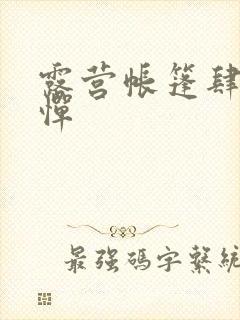 露营帐篷肆
惮
最强码字系统